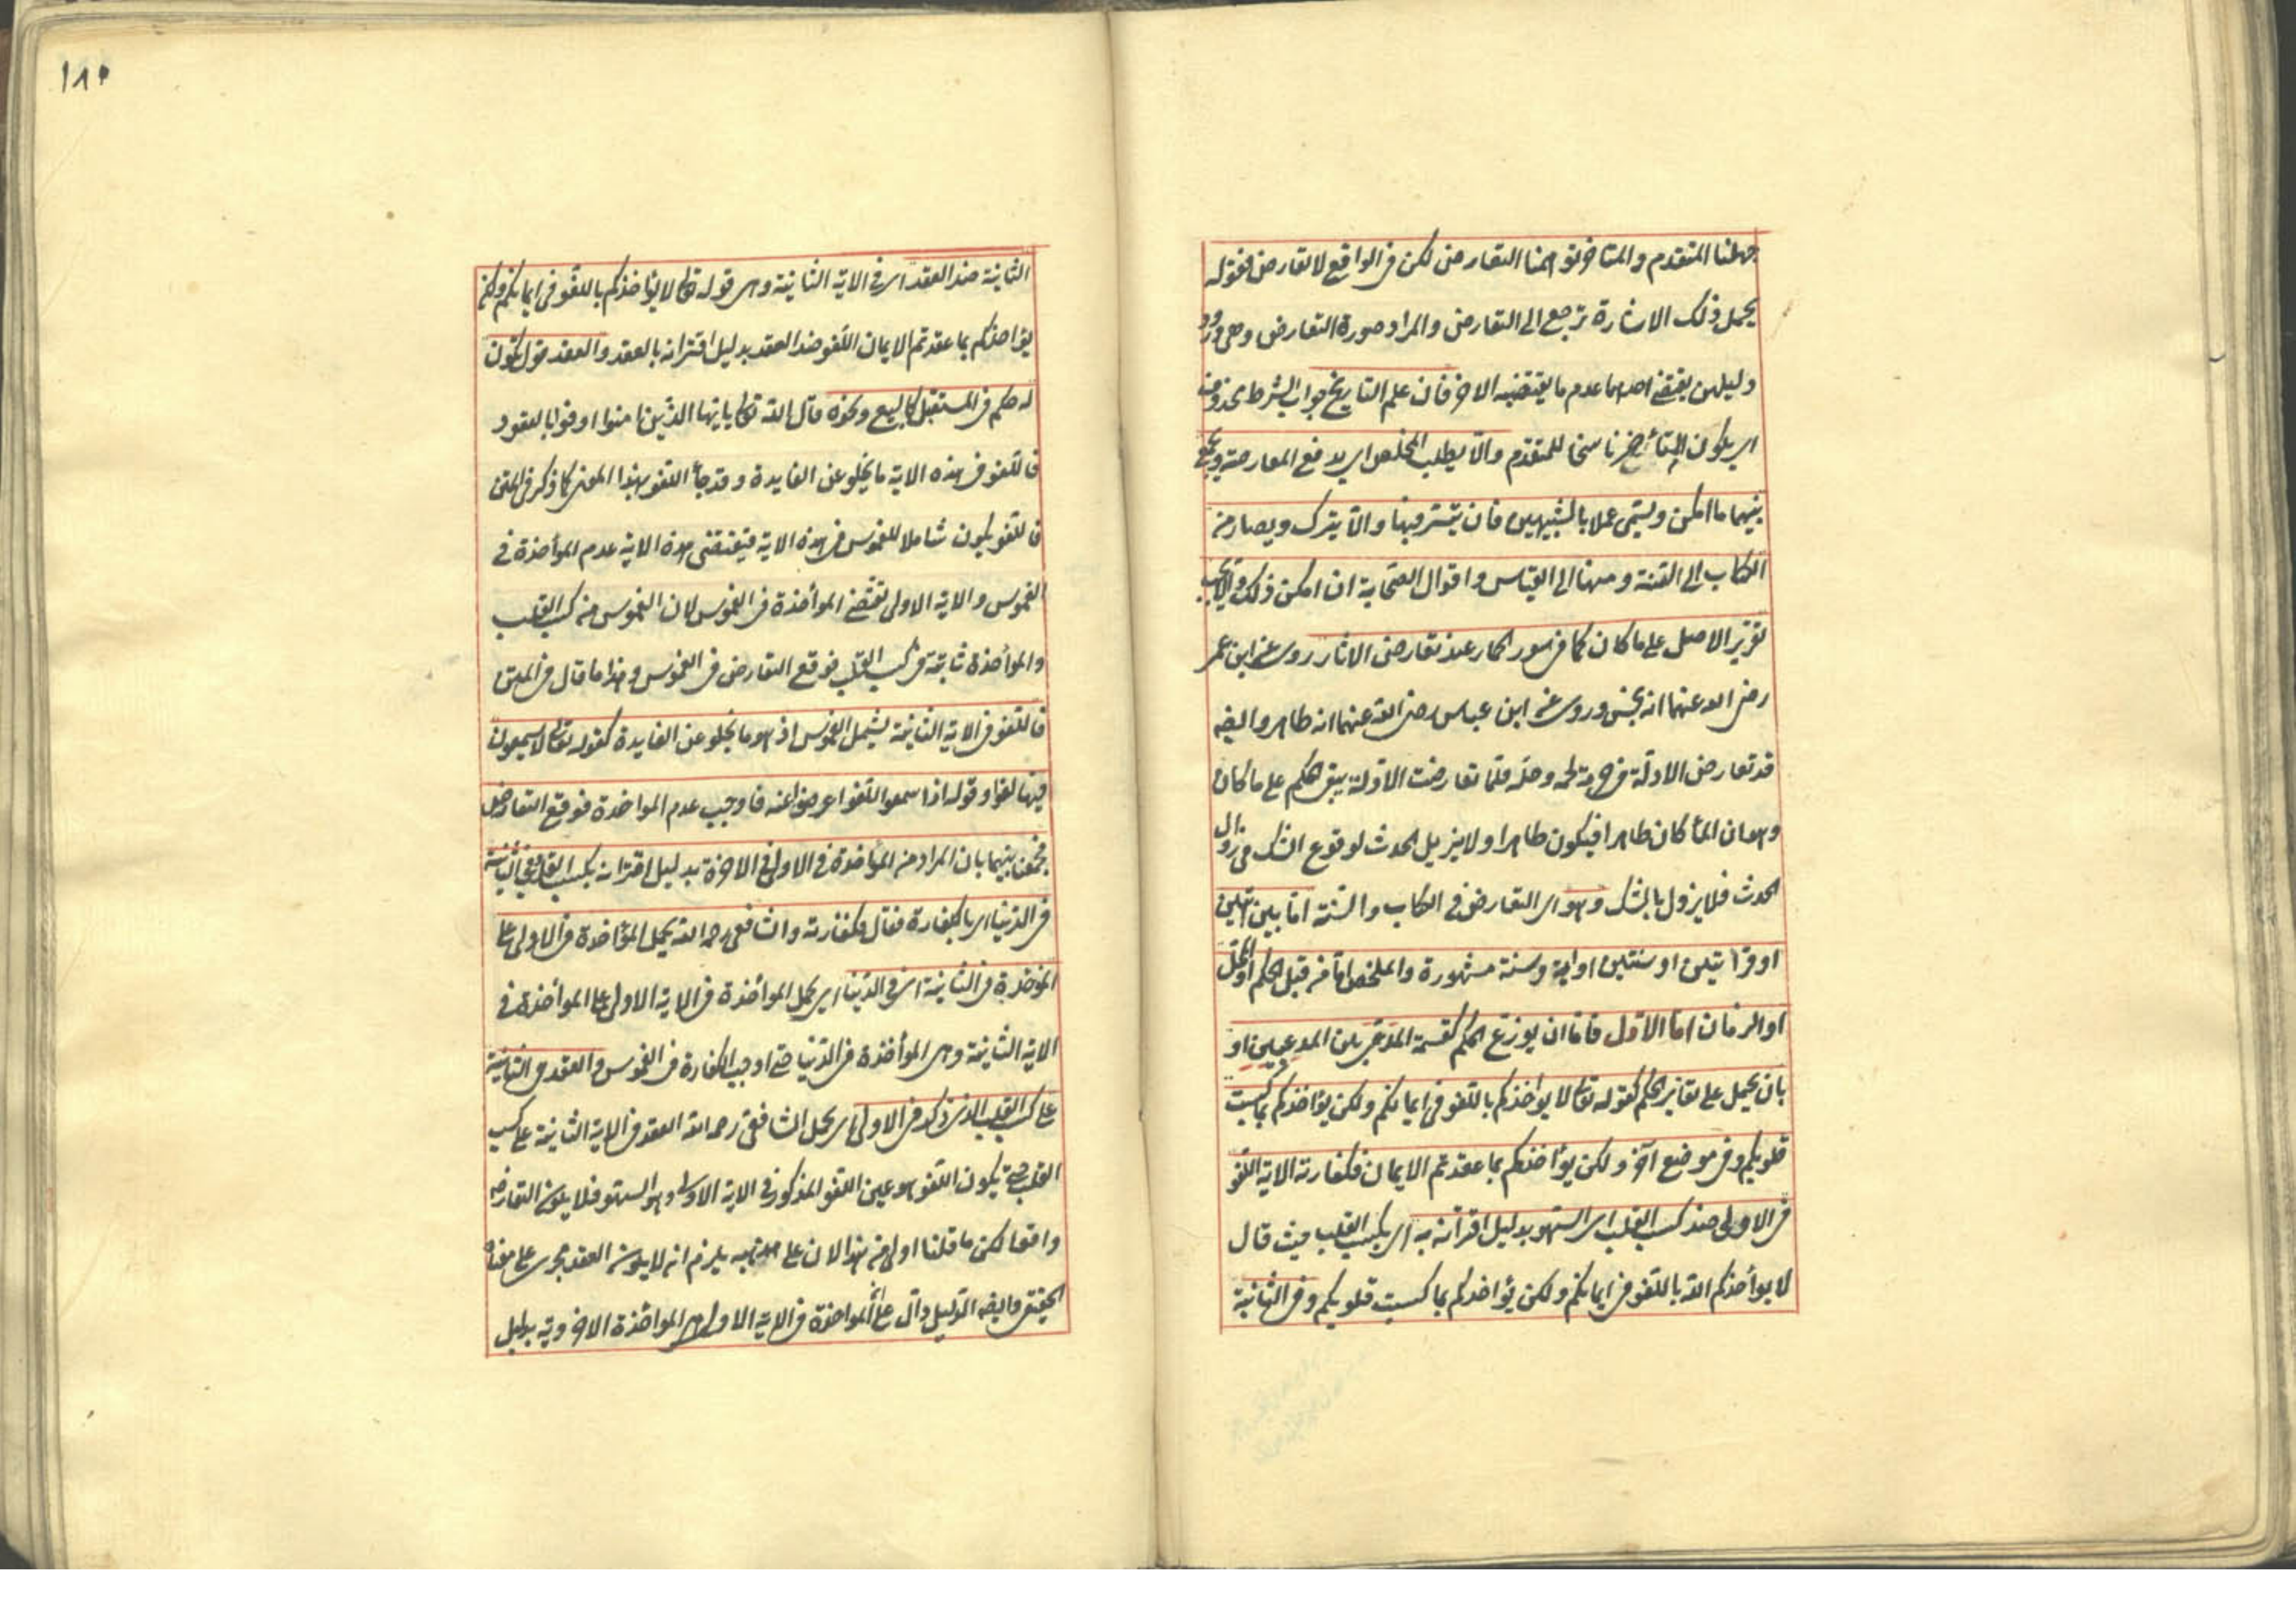 جهلنا المتقدم والمتاخر توهمنا التعارض لكن فى الواقع لا تعارض فقوله
يحمل ذلك الاشارة ترجع الى التعارض والمراد صورة التعارض وهى ورود
دليلين يقتضى احدهما عدم ما يقتضيه الاخر فان علم التاريخ جواب الشرط محذوف
اى يكون المتأخر ناسخا للمتقدم والا يطلب المخلص اى يدفع المعارضة ويجمع
بينهما ما امكن ويسمى عملا بالشبهين فان تيسر فبها والا يترك ويصار من
الكتاب الى السنة ومنها الى القياس واقوال الصحابة ان امكن ذلك والا يجب
تقرير الاصل على ما كان كما فى سور الحمار عند تعارض الاثار روى عن ابن عمر
رضى الله عنهما انه نجس وروى عن ابن عباس رضى الله عنهما انه طاهر وايضه
قد تعارض الادلة فى حرمة لحمه وحله فلما تعارضت الادلة يبقى الحكم على ما كان
وهو ان الماء كان طاهرا فيكون طاهرا ولا يزيل الحدث لوقوع الشك فى زوال
الحدث فلا يزول بالشك وهو اى التعارض فى الكتاب والسنة اما بين ايتين
او قراءتين او سنتين او اية وسنة مشهورة والمخلص اما من قبل الحكم او المحل
او الزمان اما الاول فاما ان يوزع الحكم كقسمة المدعى بين المدعيين او
بان يحمل على تغاير الحكم كقوله تع لا يواخذكم باللغو فى ايمانكم ولكن يؤاخذكم بما كسبت
قلوبكم وفى موضع آخر ولكن يؤاخذكم بما عقدتم الايمان فكفارته الاية اللغو
فى الاولى ضد كسب القلب اى السهو بدليل اقترانه به اى بكسب القلب حيث قال
لا يوأخذكم الله باللغو فى ايمانكم ولكن يؤاخذكم بما كسبت قلوبكم وفى الثانية
١٨٥
الثانية ضد العقد اى فى الاية الثانية وهى قوله تع لا يؤاخذكم باللغو فى ايمانكم ولكن
يؤاخذكم بما عقدتم الايمان اللغو ضد العقد بدليل اقترانه بالعقد والعقد قول يكون
له حكم فى المستقبل كالبيع ونحوه قال الله تع يايها الذين امنوا اوفوا بالعقود
فاللغو فى هذه الاية ما يخلو عن الفايدة وقد جأ اللغو بهذا المعنى كما ذكر فى المتن
فاللغو يكون شاملا للغموس فى هذه الاية فيقتضى هذه الاية عدم المواخذة فى
الغموس والاية الاولى تقتضى الموأخذة فى الغموس لان الغموس من كسب القلب
والموأخذة ثابتة فى كسب القلب فوقع التعارض فى الغموس وهذا ما قال فى المتن
فاللغو فى الاية الثانية يشمل الغموس اذ هو ما يخلو عن الفايدة كقوله تعالى لا يسمعون
فيها لغوا وقوله اذا سمعوا اللغو اعرضوا عنه فاوجب عدم المواخذة فوقع التعارض
فجمعنا بينهما بان المراد من المؤاخذة فى الاولى فى الاخرة بدليل اقترانه بكسب القلب وفى الثانية
فى الدنيا اى بالكفارة فقال فكفارته والشافعى رحمه الله يحمل المؤاخذة فى الاولى على
المؤخذة فى الثانية اى فى الدنيا اى يحمل الموأخذة فى الاية الاولى على المواخذة فى
الاية الثانية وهى الموأخذة فى الدنيا حتى اوجب الكفارة فى الغموس والعقد فى الثانية
على كسب القلب الذى ذكر فى الاولى اى يحمل الشافعى رحمه الله العقد فى الاية الثانية على كسب
القلب حتى يكون اللغو هو عين اللغو المذكور فى الاية الاولى وهو السهو فلا يكون التعارض
واقعا لكن ما قلنا اولى من هذا لان على مذهبه يلزم انه لا يكون العقد مجرى على معناه
الحقيقى وايضه الدليل دال على ان المواخذة فى الاية الاولى هى المواخذة الاخروية بدليل